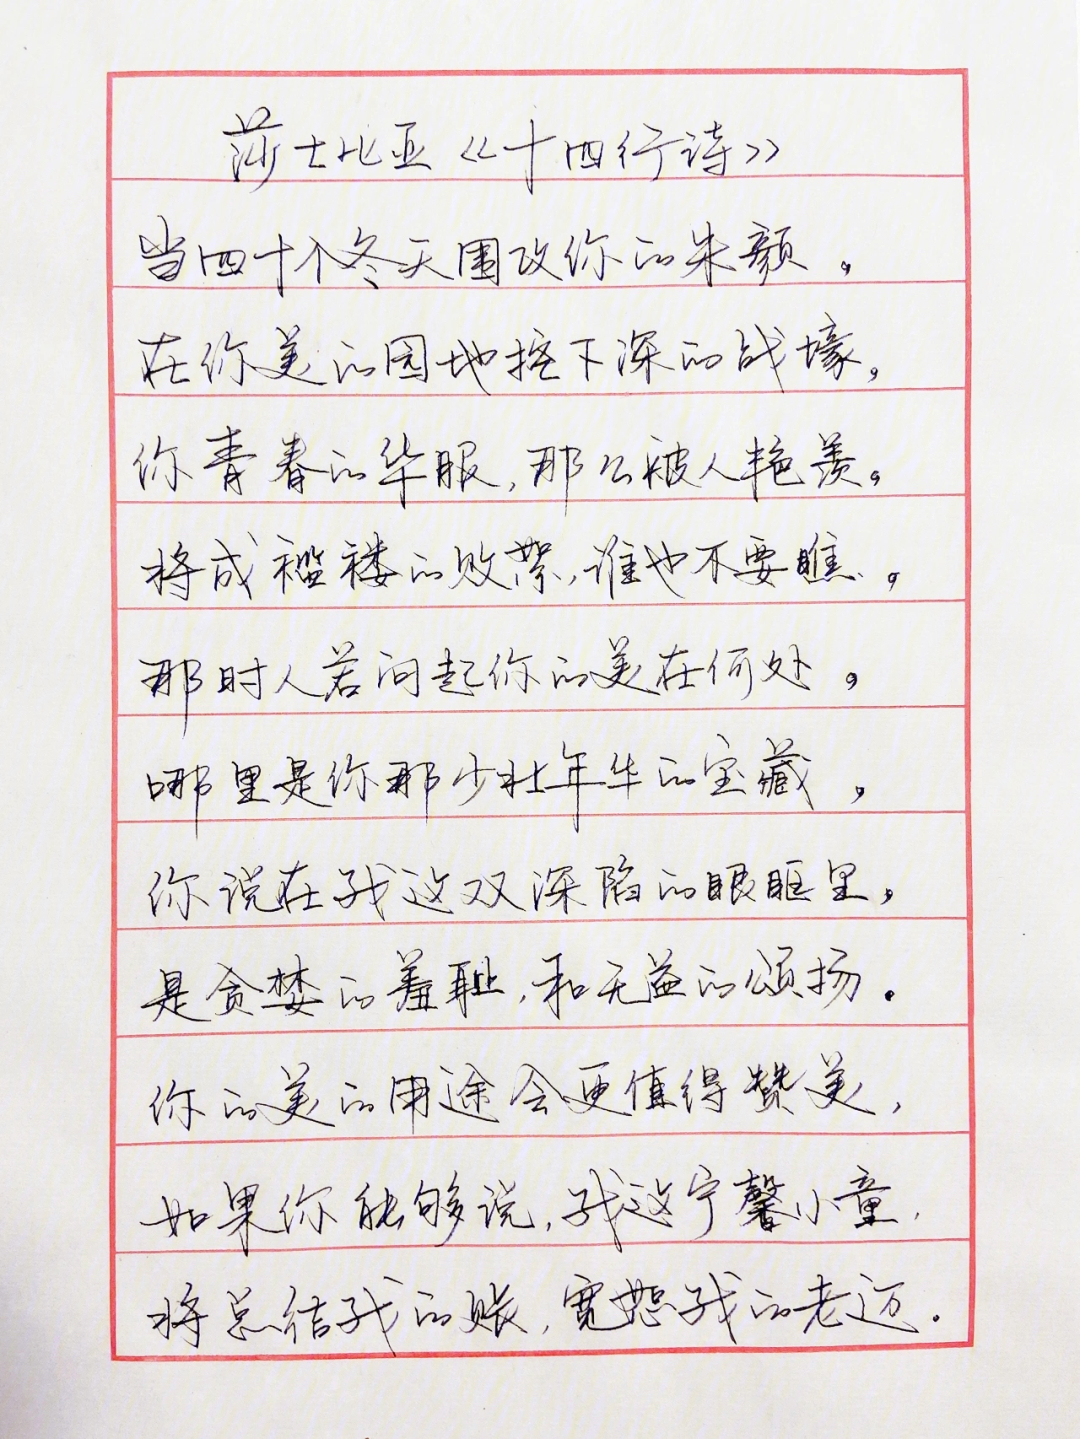 莎士比亚《十四行诗》
当四十个冬天围攻你的朱颜，
在你美的园地挖下深的战壕，
你青春的华服，那么被人艳羡，
将成褴褛的败絮，谁也不要瞧，
那时人若问起你的美在何处，
哪里是你那少壮年华的宝藏，
你说在我这双深陷的眼眶里，
是贪婪的羞耻，和无益的颂扬.
你的美的用途会更值得赞美，
如果你能够说，我这宁馨小童，
将总结我的账，宽恕我的老迈.